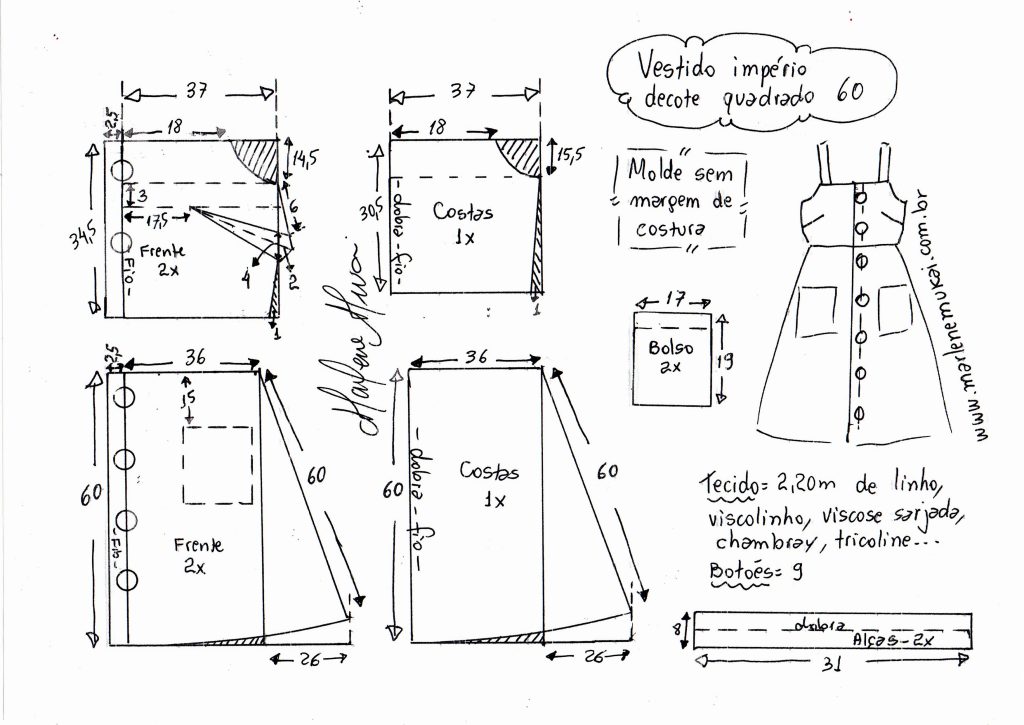 Vestido império
decote quadrado 60
37
2,5
18
14,5
3
17,5
6
34,5
Frente
2x
-Fio-
4
2
1
37
18
15,5
30,5
-dobra-fio-
Costas
1x
1
Molde sem
margem de
costura
17
Bolso
2x
19
www.marlenemukai.com.br
36
2,5
15
60
60
Frente
2x
-Fio-
26
36
60
-dobra-fio-
Costas
1x
60
26
Tecido= 2,20m de linho,
viscolinho, viscose sarjada,
chambray, tricoline...
Botões= 9
8
dobra
Alças-2x
31